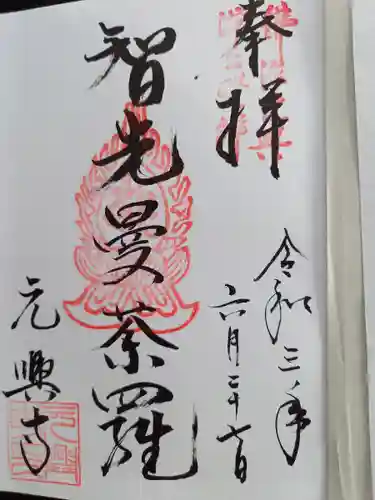 奉拝
令和三年
六月二十六日
智光曼荼羅
元興寺